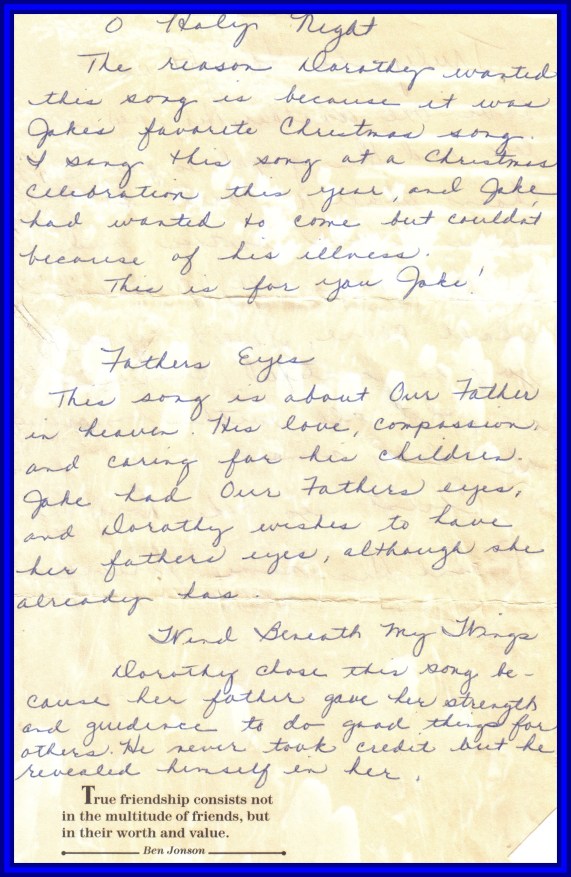 O Holy Night
The reason Dorothy wanted
this song is because it was
Jakes favorite Christmas song.
I sang this song at a Christmas
celebration this year, and Jake
had wanted to come but couldnt
because of his illness.
This is for you Jake!
Fathers Eyes
This song is about Our Father
in heaven. His love, compassion,
and caring for his children.
Jake had Our Fathers eyes,
and Dorothy wishes to have
her fathers eyes, although she
already has.
Wind Beneath My Wings
Dorothy chose this song be-
cause her father gave her strength
and guidence to do good things for
others. He never took credit but he
revealed himself in her.
True friendship consists not
in the multitude of friends, but
in their worth and value.
Ben Jonson